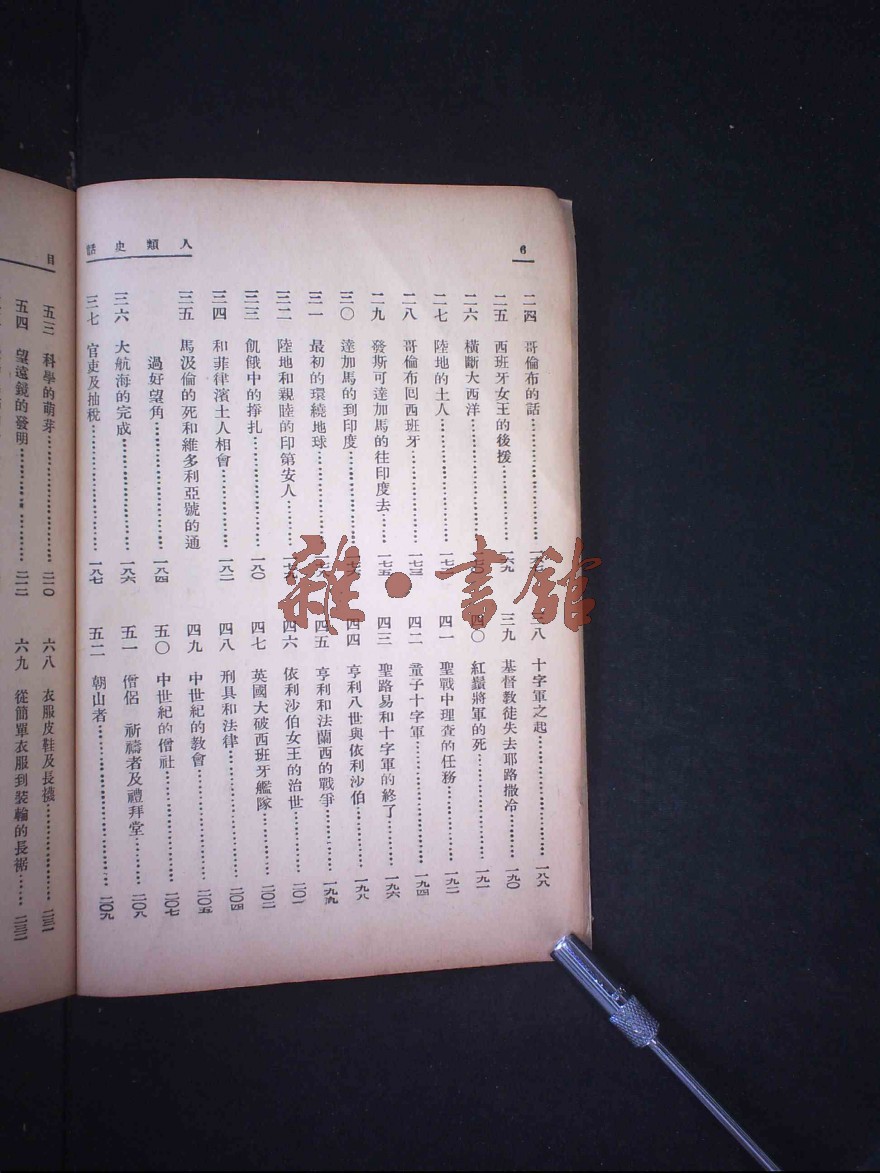 6
人類史話
二四 哥倫布的話
二五 西班牙女王的後援 一六九
二六 橫斷大西洋
二七 陸地的土人
二八 哥倫布囘西班牙 一七三
二九 發斯可達加馬的往印度去 一七五
三〇 達加馬的到印度
三一 最初的環繞地球
三二 陸地和親睦的印第安人
三三 飢餓中的掙扎 一八〇
三四 和菲律濱土人相會 一八二
三五 馬汲倫的死和維多利亞號的通
過好望角 一八四
三六 大航海的完成 一八六
三七 官吏及抽稅 一八七
三八 十字軍之起 一八八
三九 基督教徒失去耶路撒冷 一九〇
四〇 紅鬚將軍的死 一九一
四一 聖戰中理查的任務 一九二
四二 童子十字軍 一九四
四三 聖路易和十字軍的終了 一九六
四四 亨利八世與依利沙伯 一九八
四五 亨利和法蘭西的戰爭 一九九
四六 依利沙伯女王的治世 二〇一
四七 英國大破西班牙艦隊 二〇二
四八 刑具和法律 二〇四
四九 中世紀的教會 二〇五
五〇 中世紀的僧社 二〇七
五一 僧侶 祈禱者及禮拜堂 二〇八
五二 朝山者 二〇九
目
五三 科學的萌芽 二一〇
五四 望遠鏡的發明 二一二
六八 衣服皮鞋及長襪 二三一
六九 從簡單衣服到裝輪的長裾 二三二
雜·書館